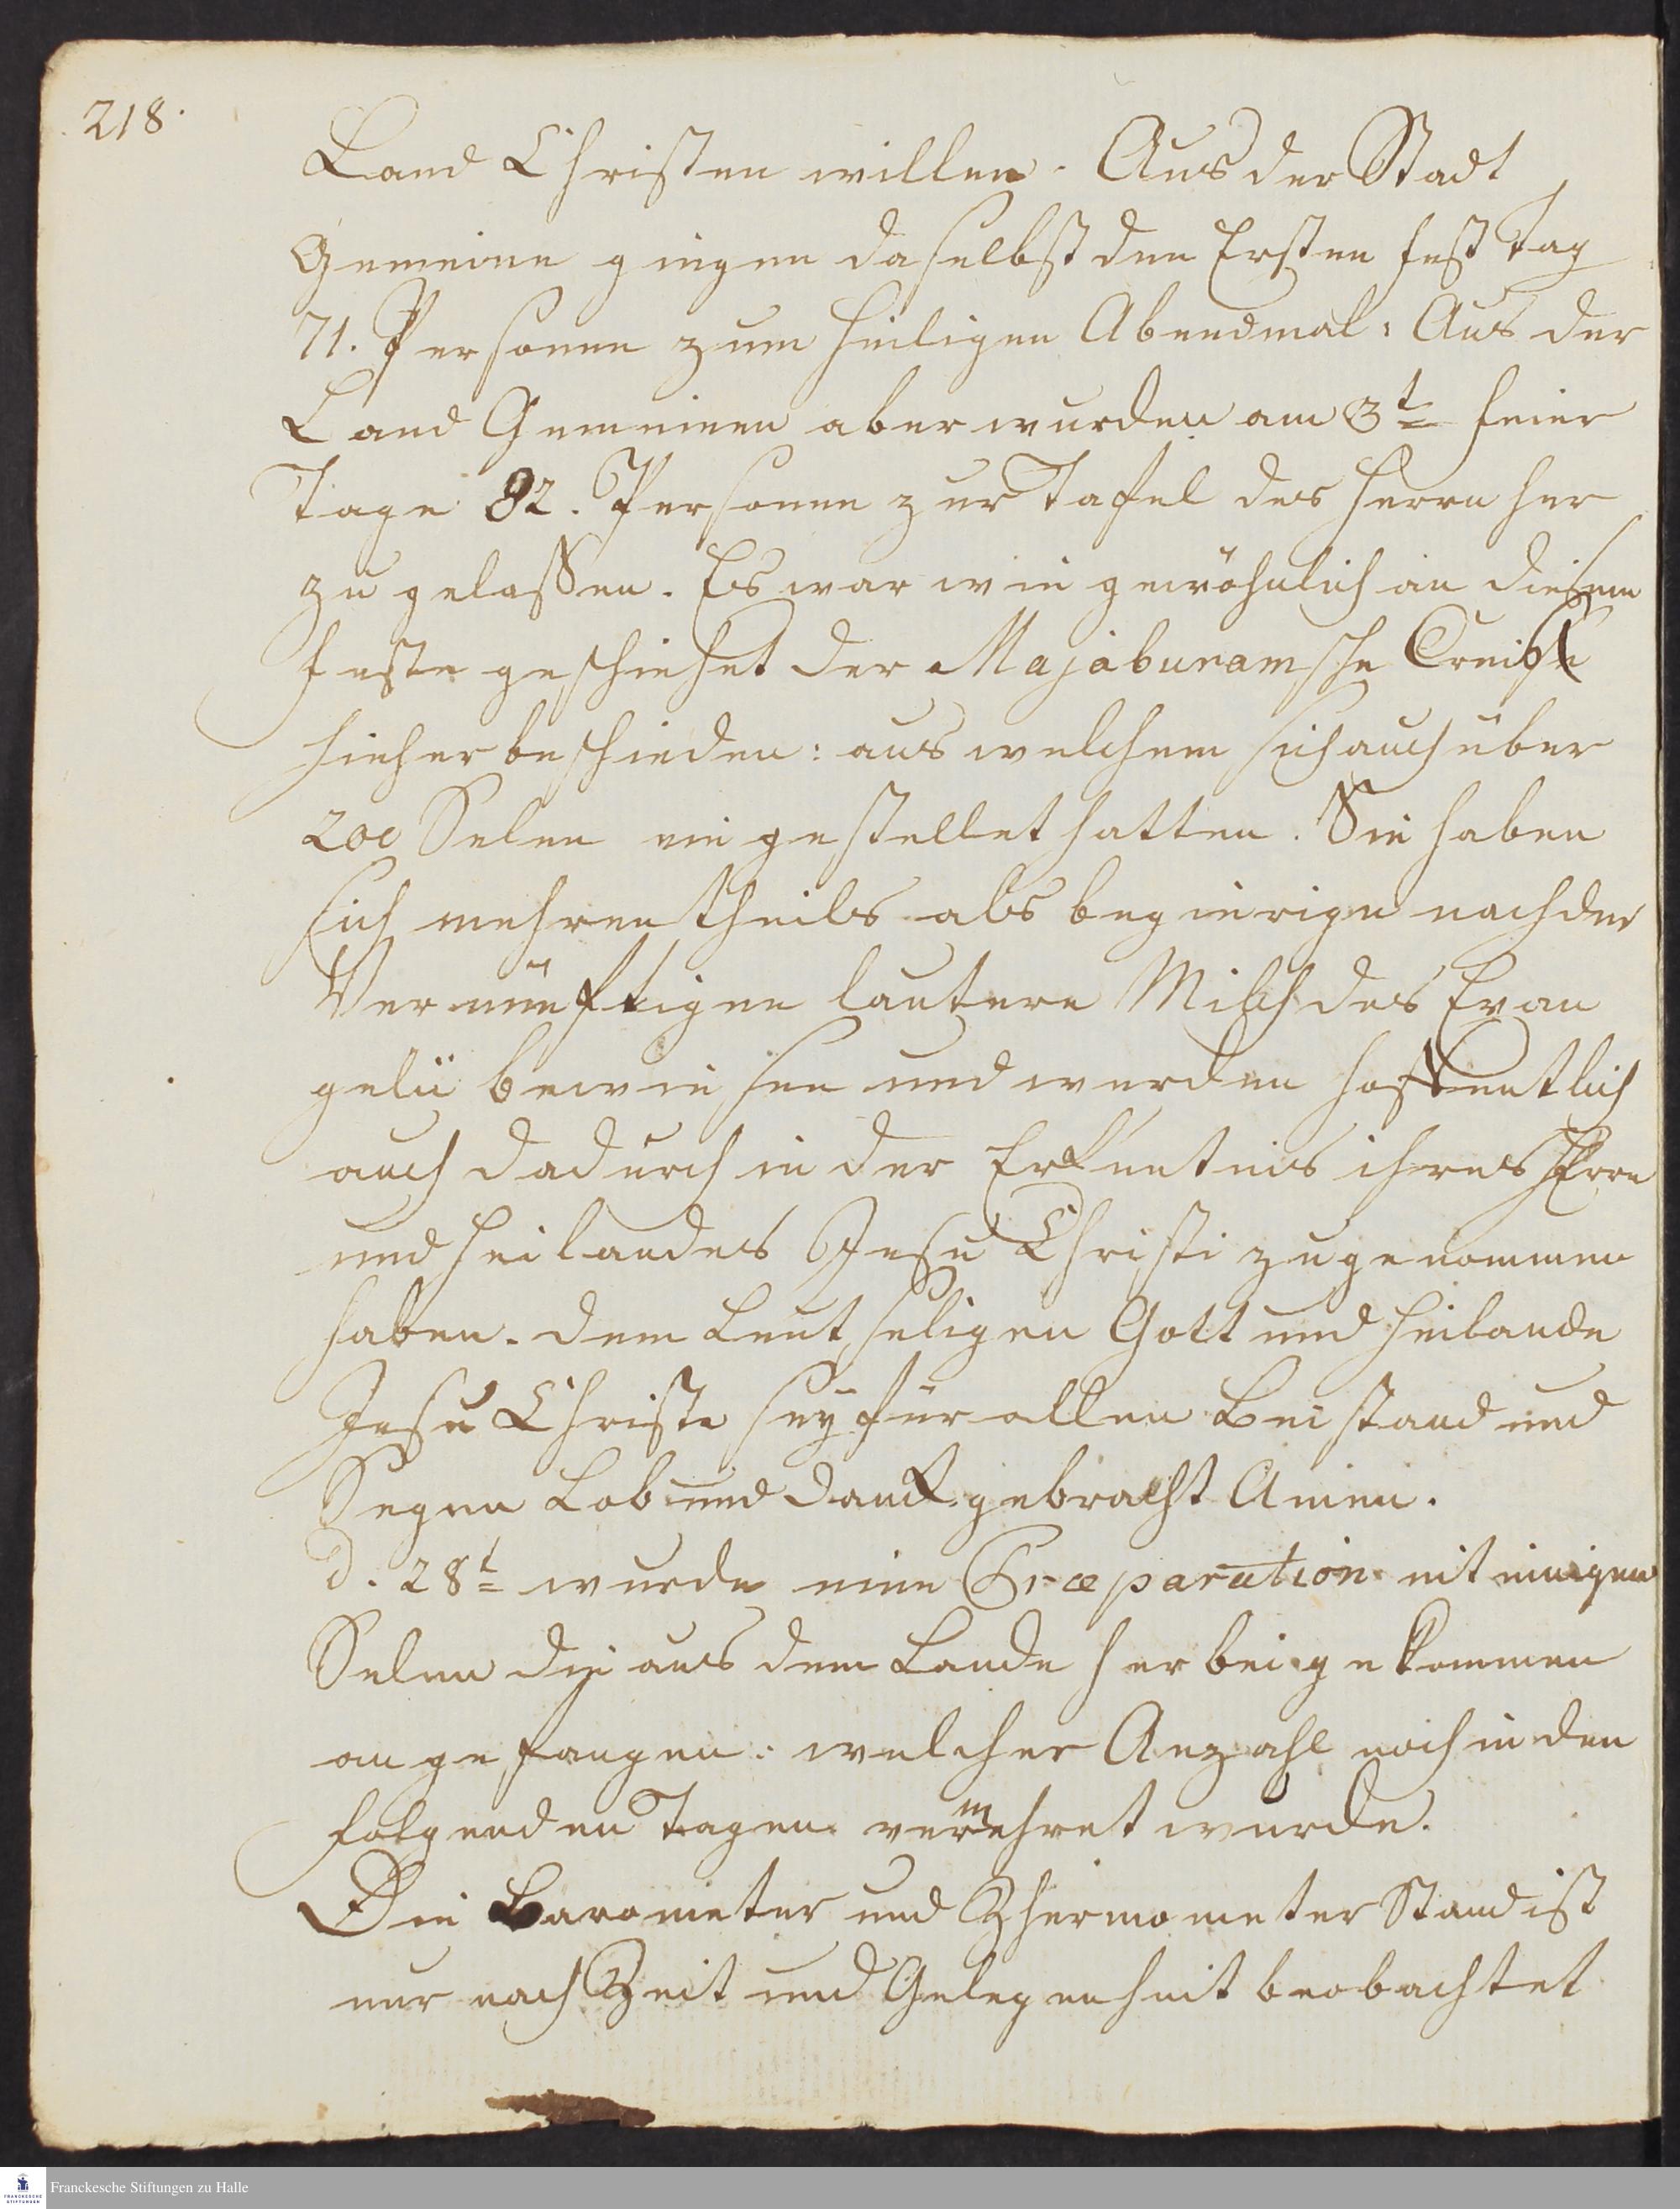 218.
Land Christen willen. Aus der Stadt
Gemeine gingen daselbst den Ersten Fest Tag
71. Personen zum heiligen Abendmal: Aus der
Land Gemeinen aber wurden am 3t= Feier
Tage 82. Personen zur Tafel des Herrn her
zu gelassen. Es war wie gewöhnlich an diesem
Feste geschiehet der Majaburamsche Creiß
hieher beschieden: aus welchem sich auch über
200 Selen eingestellet hatten. Sie haben
sich mehrentheils als begierige nach der
Vernünftigen lautern Milch des Evan
gelii bewiesen und werden hoffentlich
auch dadurch in der Erkentnis ihres HErrn
und Heilandes Jesu Christi zugenommen
haben. dem Leutseligen Gott und Heilande
Jesu Christo sey für allen Beistand und
Segen Lob und Danck gebracht Amen.
d. 28t= wurde eine Præparation mit einigen
Selen die aus dem Lande herbei gekommen
angefangen: welcher Anzahl noch in den
folgenden Tagen vermehret wurde.
Die Barometer und Thermometer Stand ist
nur nach Zeit und Gelegenheit beobachtet
Franckesche Stiftungen zu Halle
FRANCKESCHE
STIFTUNGEN